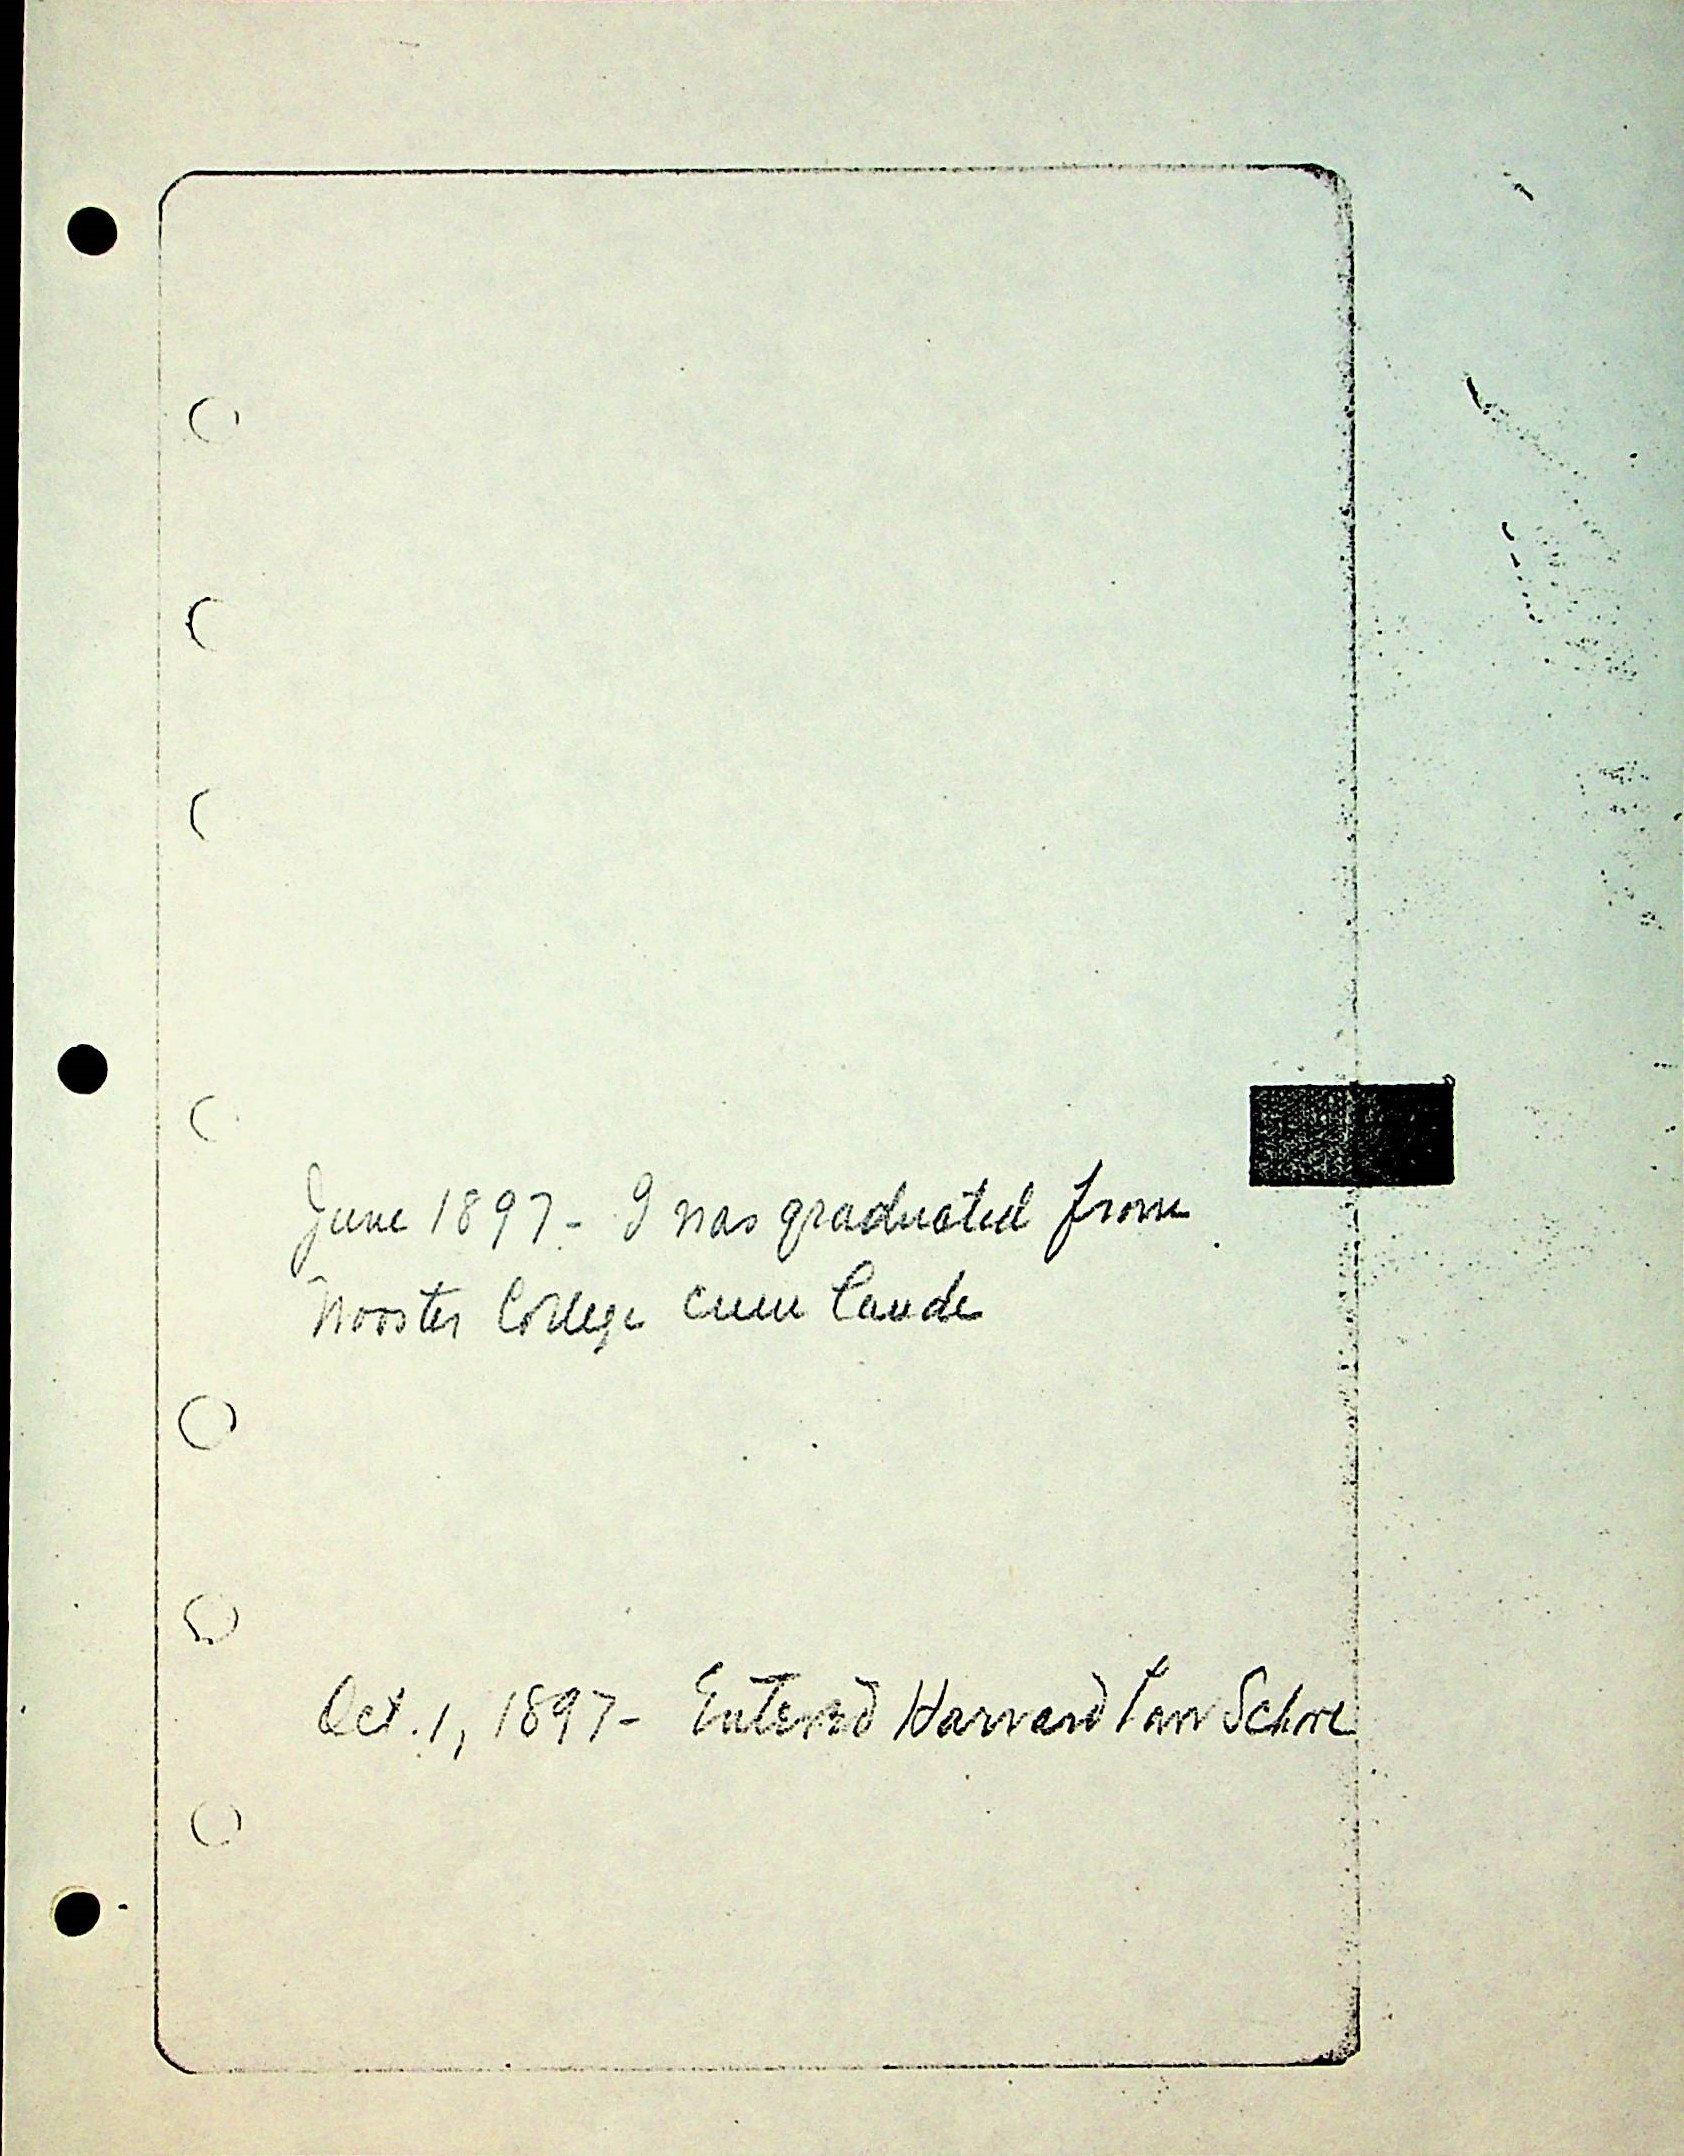 June 1897 - I was graduated from
Wooster College cum laude
Oct. 1, 1897 - Entered Harvard Law School